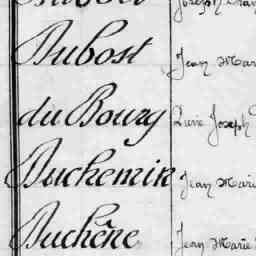 Dubost Jean Mar
du Bourg Joseph
Duchemin Jean Marie
Duchêne Jean Marie